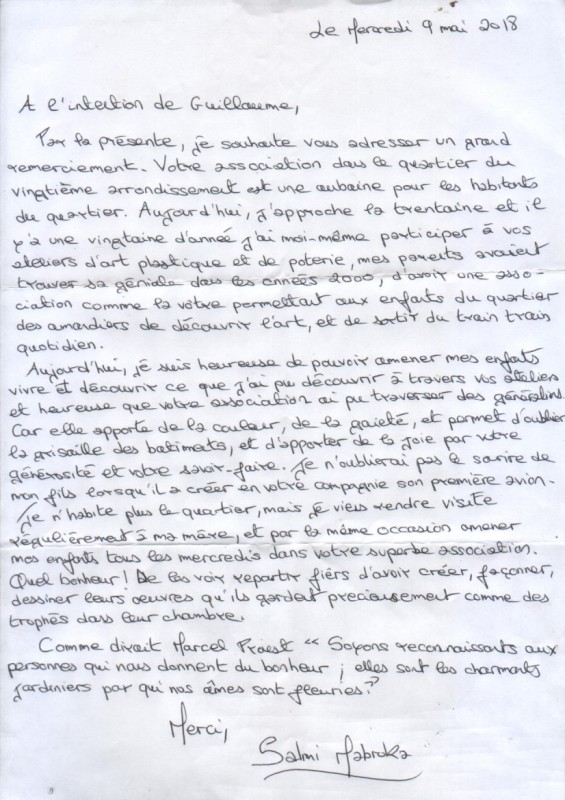 Le Mercredi 9 mai 2018
A l'intention de Guillaume,
Par la présente, je souhaite vous adresser un grand
remerciement. Votre association dans le quartier du
vingtième arrondissement est une aubaine pour les habitants
du quartier. Aujourd'hui, j'approche la trentaine et il
y'a une vingtaine d'année j'ai moi-même participer à vos
ateliers d'art plastique et de poterie, mes parents avaient
trouver sa géniale dans les années 2000, d'avoir une asso-
ciation comme la vôtre permettant aux enfants du quartier
des amandiers de découvrir l'art, et de sortir du train train
quotidien.
Aujourd'hui, je suis heureuse de pouvoir amener mes enfants
vivre et découvrir ce que j'ai pu découvrir à travers vos ateliers
et heureuse que votre association ai pu traverser des générations.
Car elle apporte de la couleur, de la gaieté, et permet d'oublier
la grisaille des batiments, et d'apporter de la joie par votre
générosité et votre savoir-faire. Je n'oublierai pas le sourire de
mon fils lorsqu'il a créer en votre compagnie son première avion.
Je n'habite plus le quartier, mais je viens rendre visite
régulièrement à ma mère, et par la même occasion amener
mes enfants tous les mercredis dans votre superbe association.
Quel bonheur! De les voir repartir fiêrs d'avoir créer, façonner,
dessiner leurs oeuvres qu'ils gardent precieusement comme des
trophés dans leur chambre.
Comme dirait Marcel Proust " Soyons reconnaissants aux
personnes qui nous donnent du bonheur ; elles sont les charmants
jardiniers par qui nos âmes sont fleuries."
Merci,
Salmi Mabroka